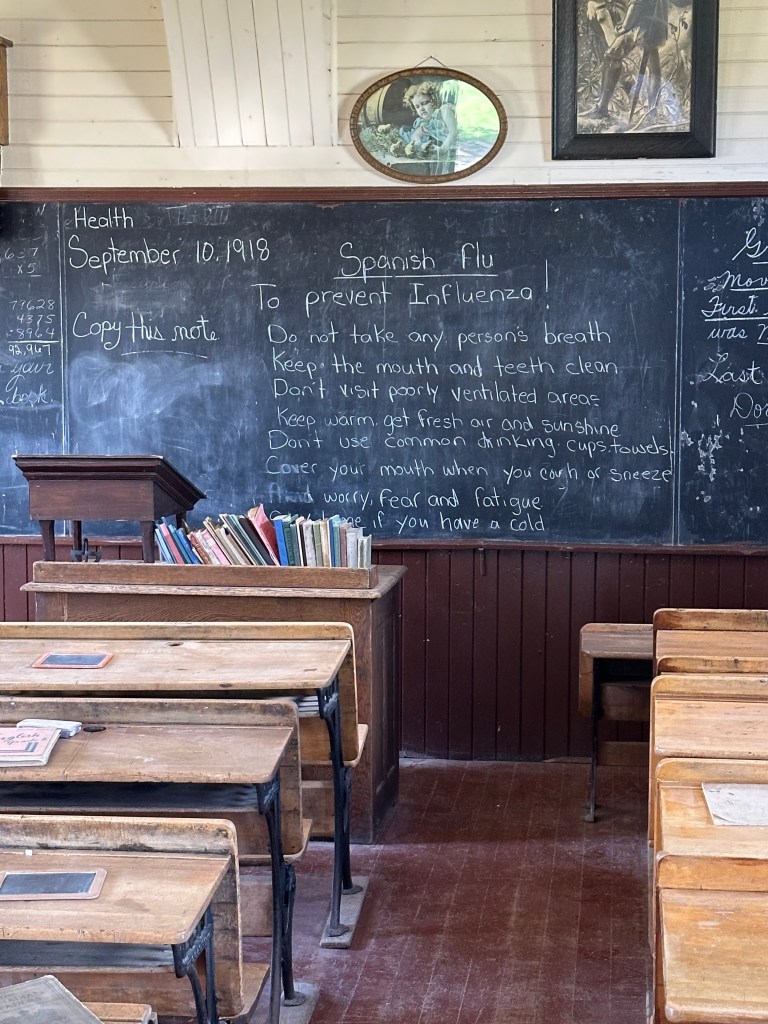 Health
September 10, 1918
Spanish flu
To prevent Influenza!
Copy this note
Do not take any person's breath
Keep the mouth and teeth clean
Don't visit poorly ventilated areas
Keep warm, get fresh air and sunshine
Don't use common drinking cups, towels,
Cover your mouth when you cough or sneeze
worry, fear and fatigue
if you have a cold
x 5
77628
4375
8964
92,967
your
book.
First
was
Last
English